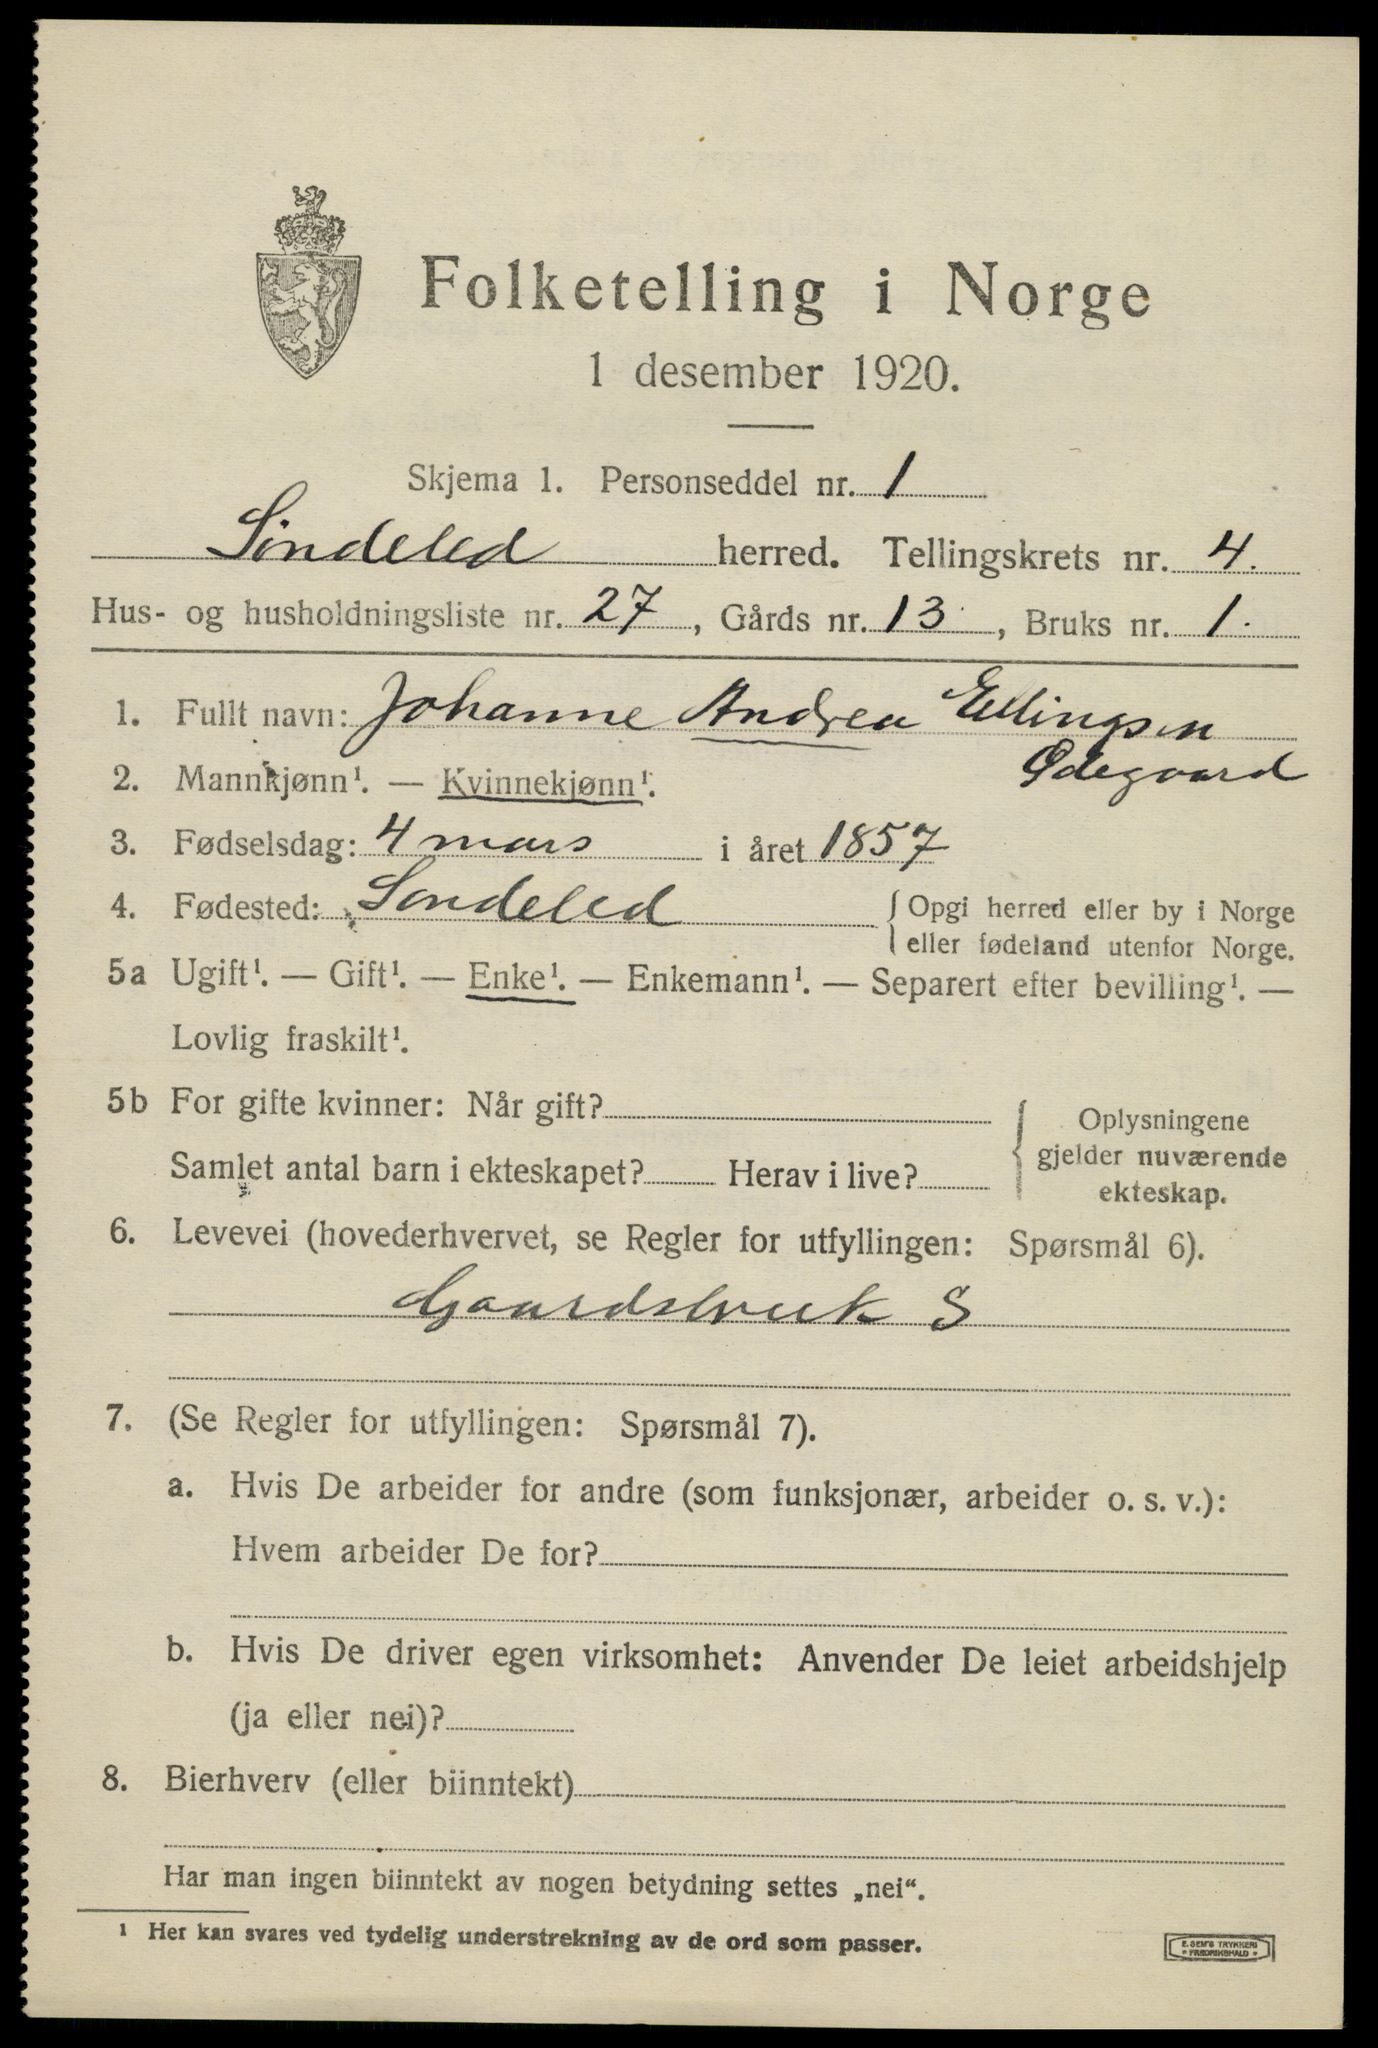 Folketelling i Norge
1 desember 1920.
Skjema 1. Personseddel nr. 1
Søndeled herred. Tellingskrets nr. 4.
Hus- og husholdningsliste nr. 27, Gårds nr. 13, Bruks nr. 1.
1. Fullt navn: Johanne Andrea Ellingsen
Ødegaard
2. Mannkjønn¹. — Kvinnekjønn¹.
3. Fødselsdag: 4 mars i året 1857
4. Fødested: Søndeled { Opgi herred eller by i Norge
eller fødeland utenfor Norge.
5a Ugift¹. — Gift¹. — Enke¹. — Enkemann¹. — Separert efter bevilling¹. —
Lovlig fraskilt¹.
5b For gifte kvinner: Når gift?
Samlet antal barn i ekteskapet? Herav i live?
{ Oplysningene
gjelder nuværende
ekteskap.
6. Levevei (hovederhvervet, se Regler for utfyllingen: Spørsmål 6).
Gaardsbruk S
7. (Se Regler for utfyllingen: Spørsmål 7).
a. Hvis De arbeider for andre (som funksjonær, arbeider o. s. v.):
Hvem arbeider De for?
b. Hvis De driver egen virksomhet: Anvender De leiet arbeidshjelp
(ja eller nei)?
8. Bierhverv (eller biinntekt)
Har man ingen biinntekt av nogen betydning settes „nei“.
¹ Her kan svares ved tydelig understrekning av de ord som passer.
E. SEM'S TRYKKERI
• FREDRIKSHALD •